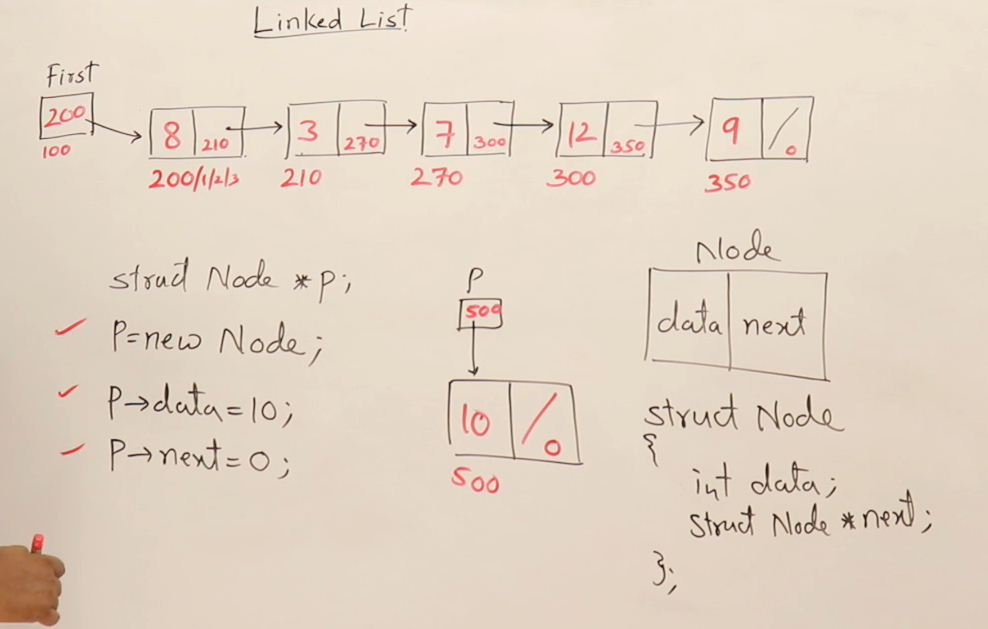 Linked List
First
200
100
8 210
200/1/2/3
3 270
210
7 300
270
12 350
300
9 0
350
struct Node *p;
P=new Node;
P→data=10;
P→next=0;
P
500
10 0
500
Node
data next
struct Node
{
int data;
struct Node *next;
};